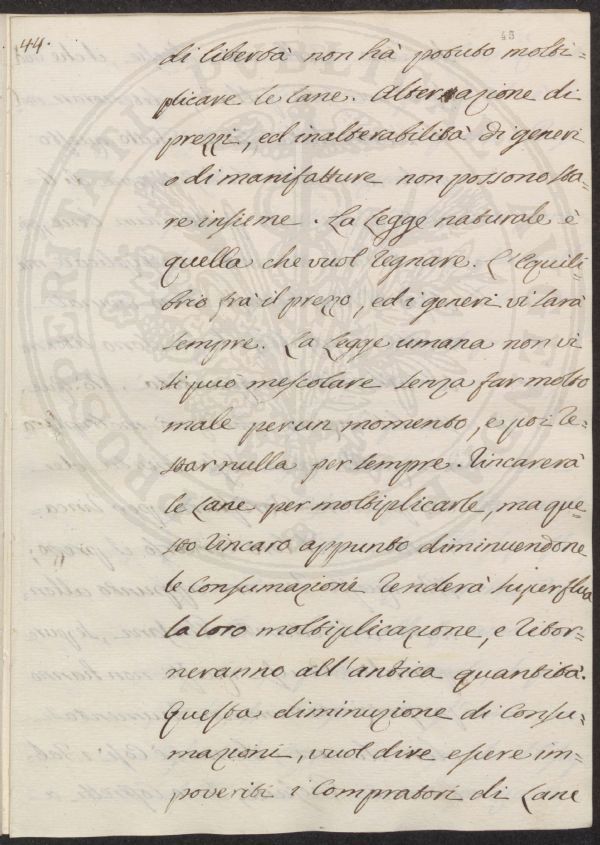 44.
45
di libertà non hà potuto molti=
plicare le lane. Alterazione di
prezzi, ed inalterabilità di generi
o di manifatture non possono sta
re insieme. La Legge naturale è
quella che vuol regnare. L'Equili=
brio frà il prezzo, ed i generi vi sarà
sempre. La Legge umana non vi
si può mescolare senza far molto
male per un momento, e poi re=
star nulla per sempre. Rincarerà
le Lane per moltiplicarle, ma que=
sto rincaro appunto diminuendone
le Consumazione renderà superflua
la loro moltiplicazione, e ritor=
neranno all'antica quantità.
Questa diminuzione di Consu=
mazioni, vuol dire essere im=
poveriti i Compratori di Lane